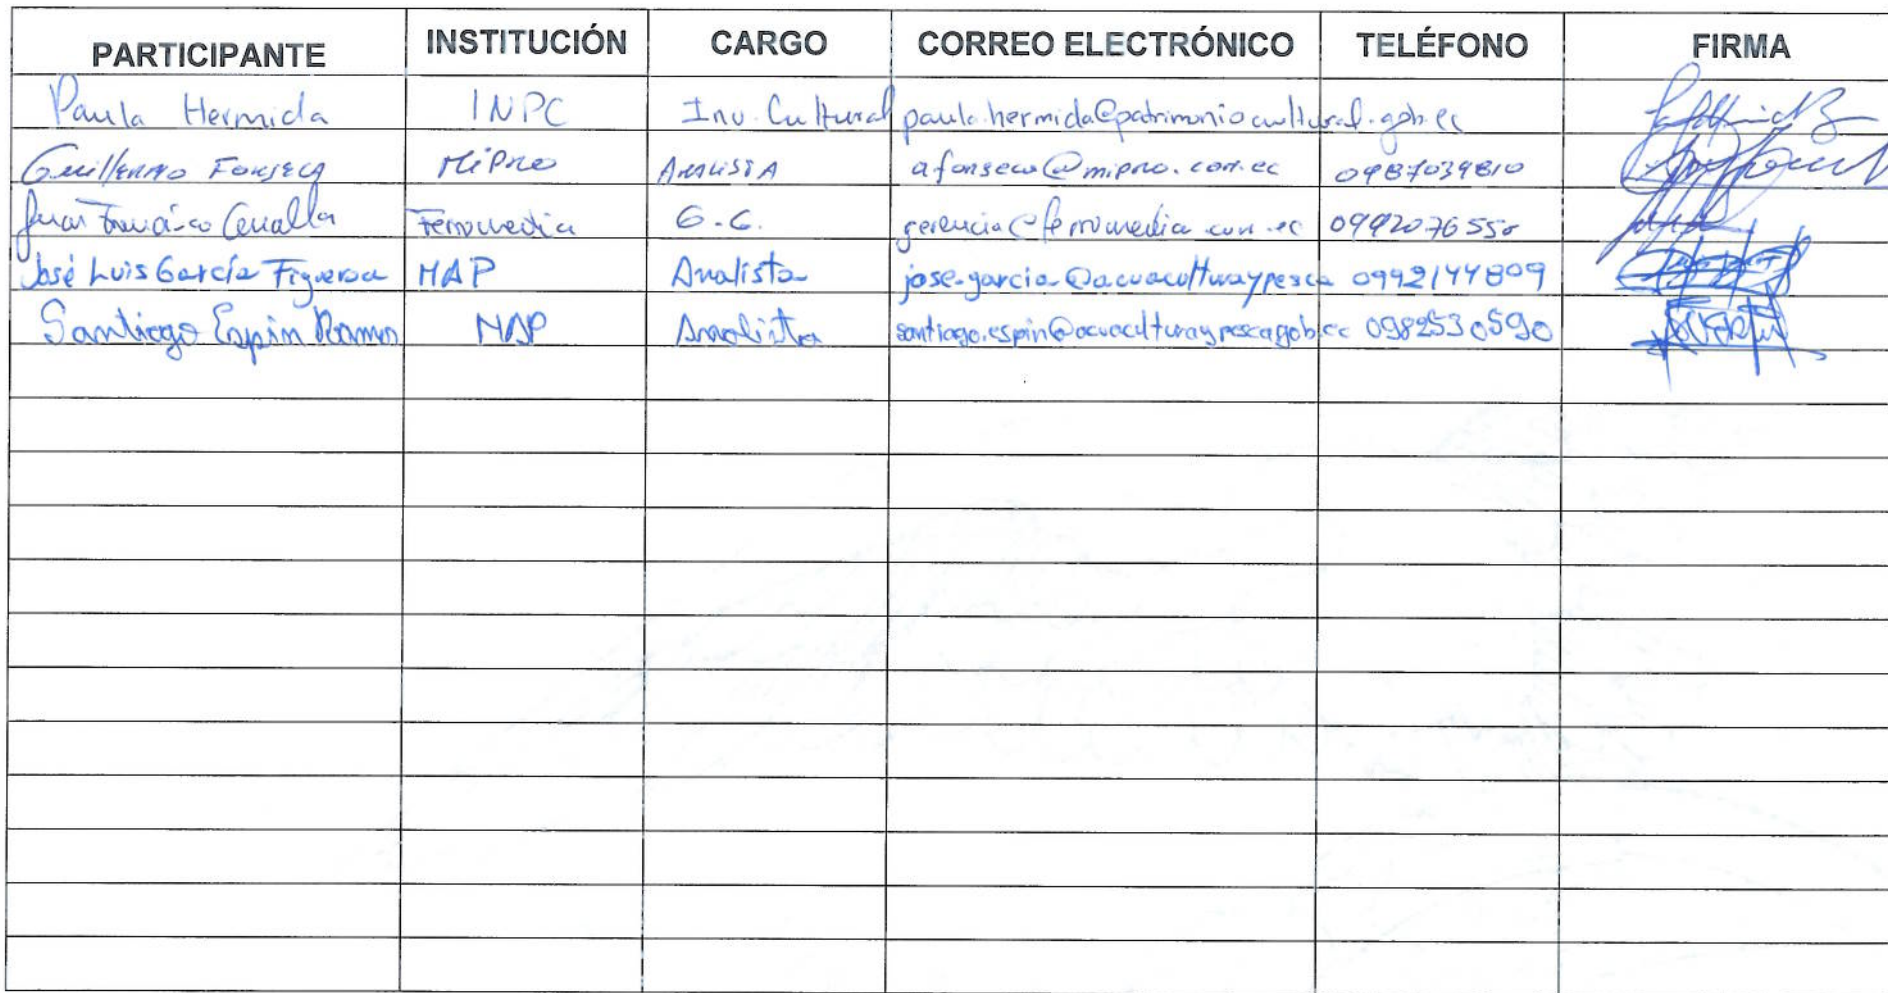 PARTICIPANTE INSTITUCIÓN CARGO CORREO ELECTRÓNICO TELÉFONO FIRMA
Paula Hermida INPC Inv. Cultural paula.hermida@patrimoniocultural.gob.ec
Guillermo Fonseca MiPRO ANALISTA afonseca@mipro.com.ec 0987039810
Juan Francisco Ferromedia G.G. gerencia@ferromedia.com.ec 0992076550
José Luis García Figueroa MAP Analista jose.garcia@acuaculturaypesca 0992144809
Santiago Espín Ramos MAP Analista santiago.espin@acuaculturaypesca.gob.ec 0982530590